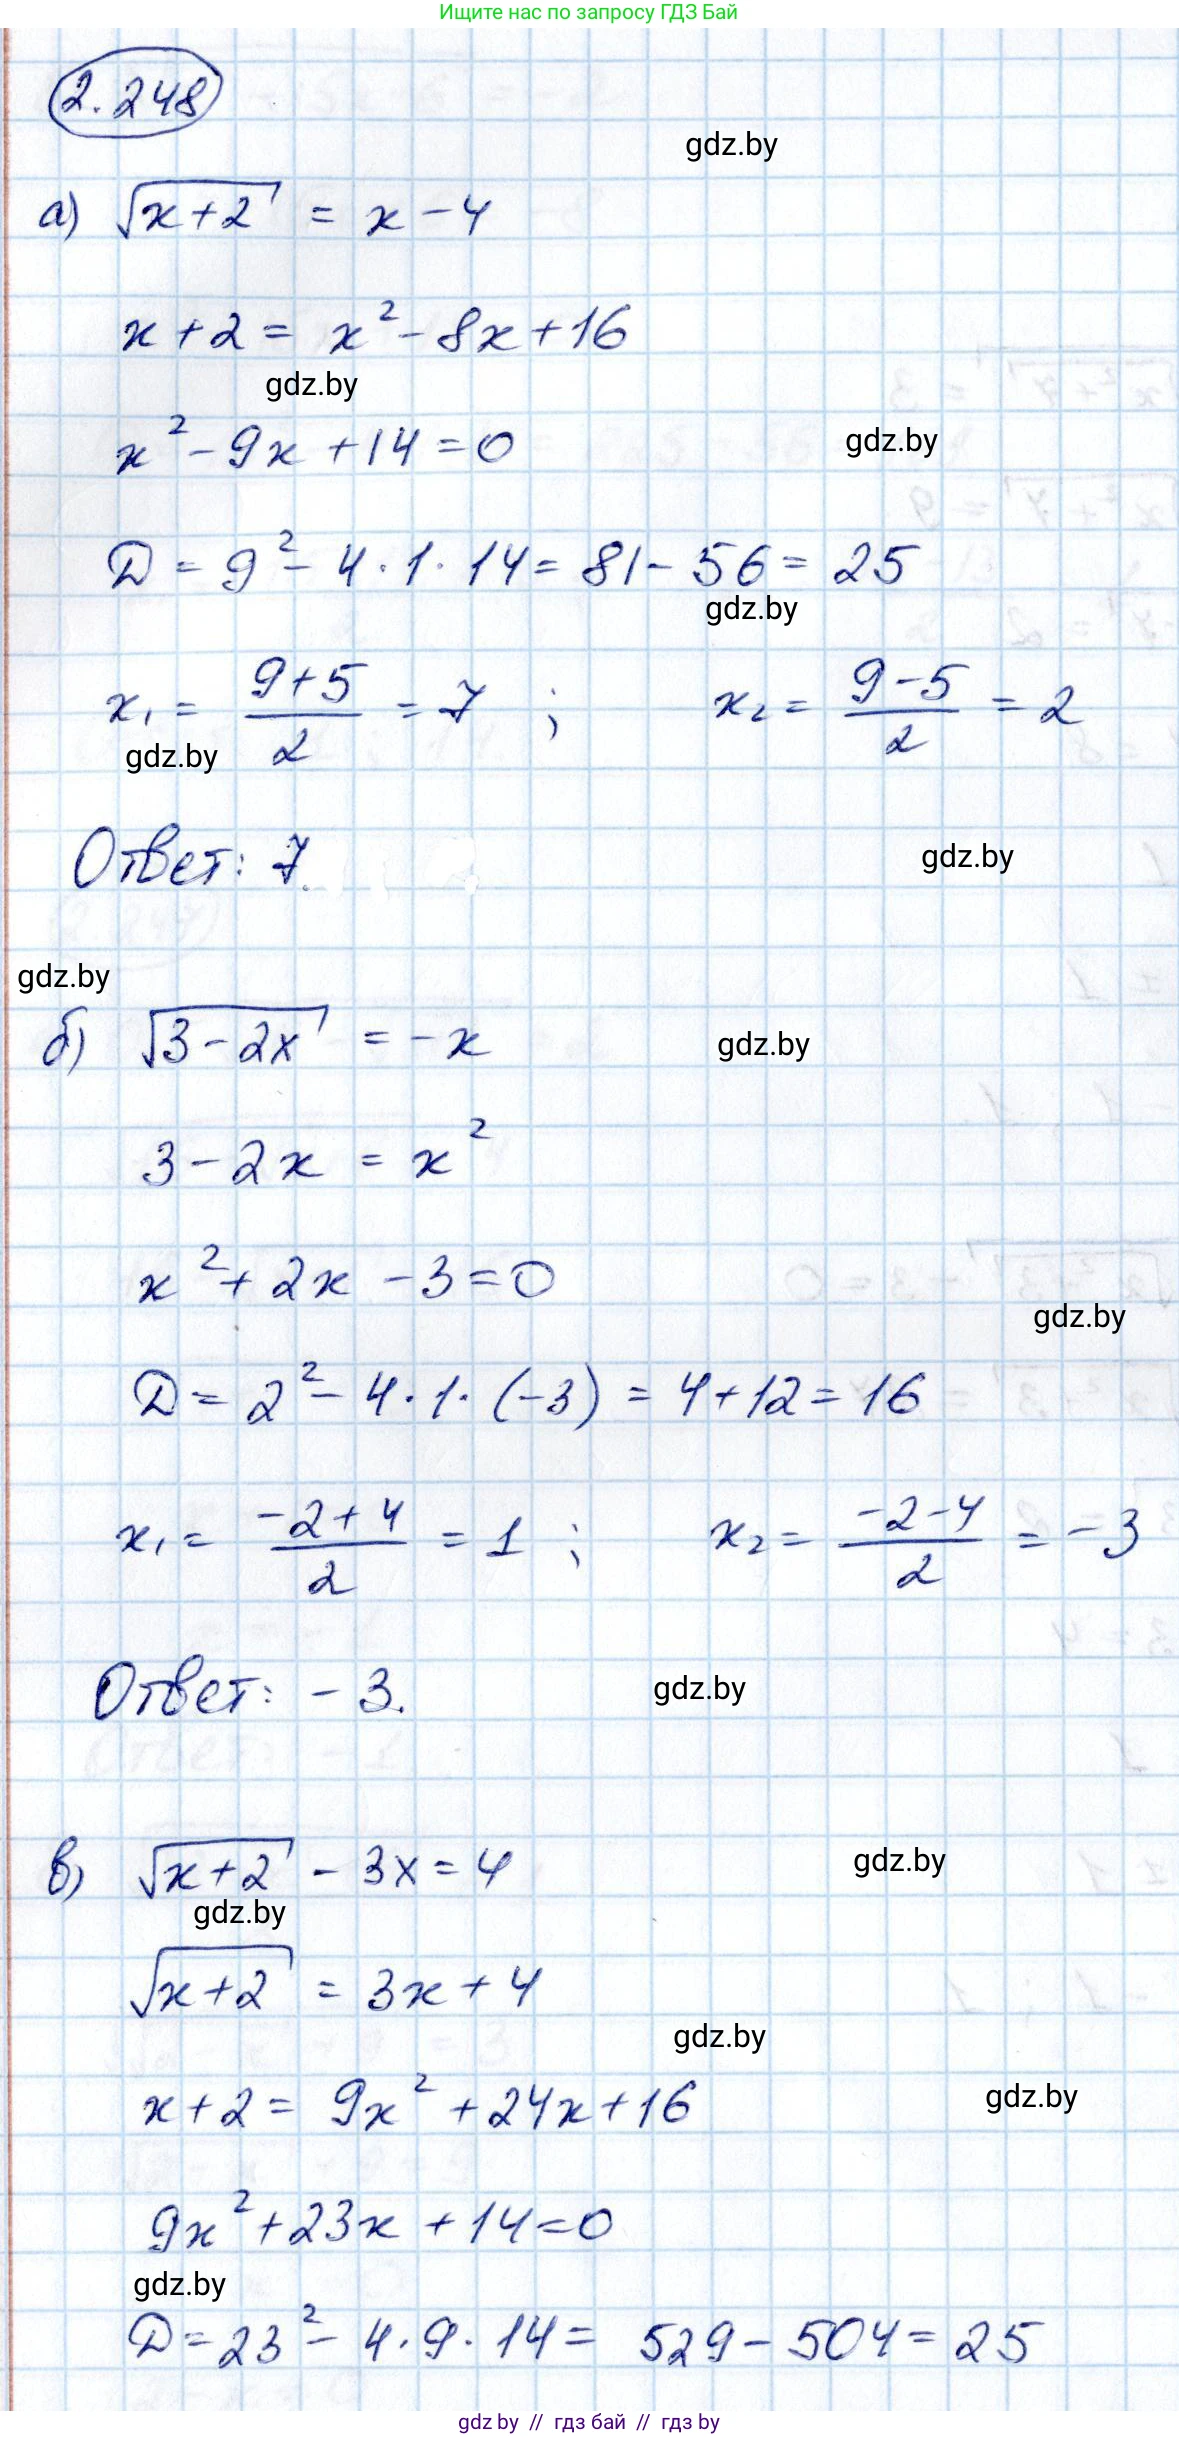 Ищите нас по запросу ГДЗ Бай
2.248
gdz.by
а) √(x+2) = x-4
x+2 = x²-8x+16
gdz.by
gdz.by
x²-9x+14=0
D = 9²-4·1·14 = 81-56 = 25
gdz.by
x₁ = (9+5)/2 = 7 ; x₂ = (9-5)/2 = 2
gdz.by
Ответ: 7.
gdz.by
gdz.by
б) √(3-2x) = -x
gdz.by
3-2x = x²
x²+2x-3=0
gdz.by
D = 2²-4·1·(-3) = 4+12 = 16
x₁ = (-2+4)/2 = 1 ; x₂ = (-2-4)/2 = -3
Ответ: -3.
gdz.by
в) √(x+2) - 3x = 4
gdz.by
gdz.by
√(x+2) = 3x+4
gdz.by
x+2 = 9x²+24x+16
gdz.by
9x²+23x+14=0
gdz.by
D = 23²-4·9·14 = 529-504 = 25
gdz by // гдз бай // гдз by